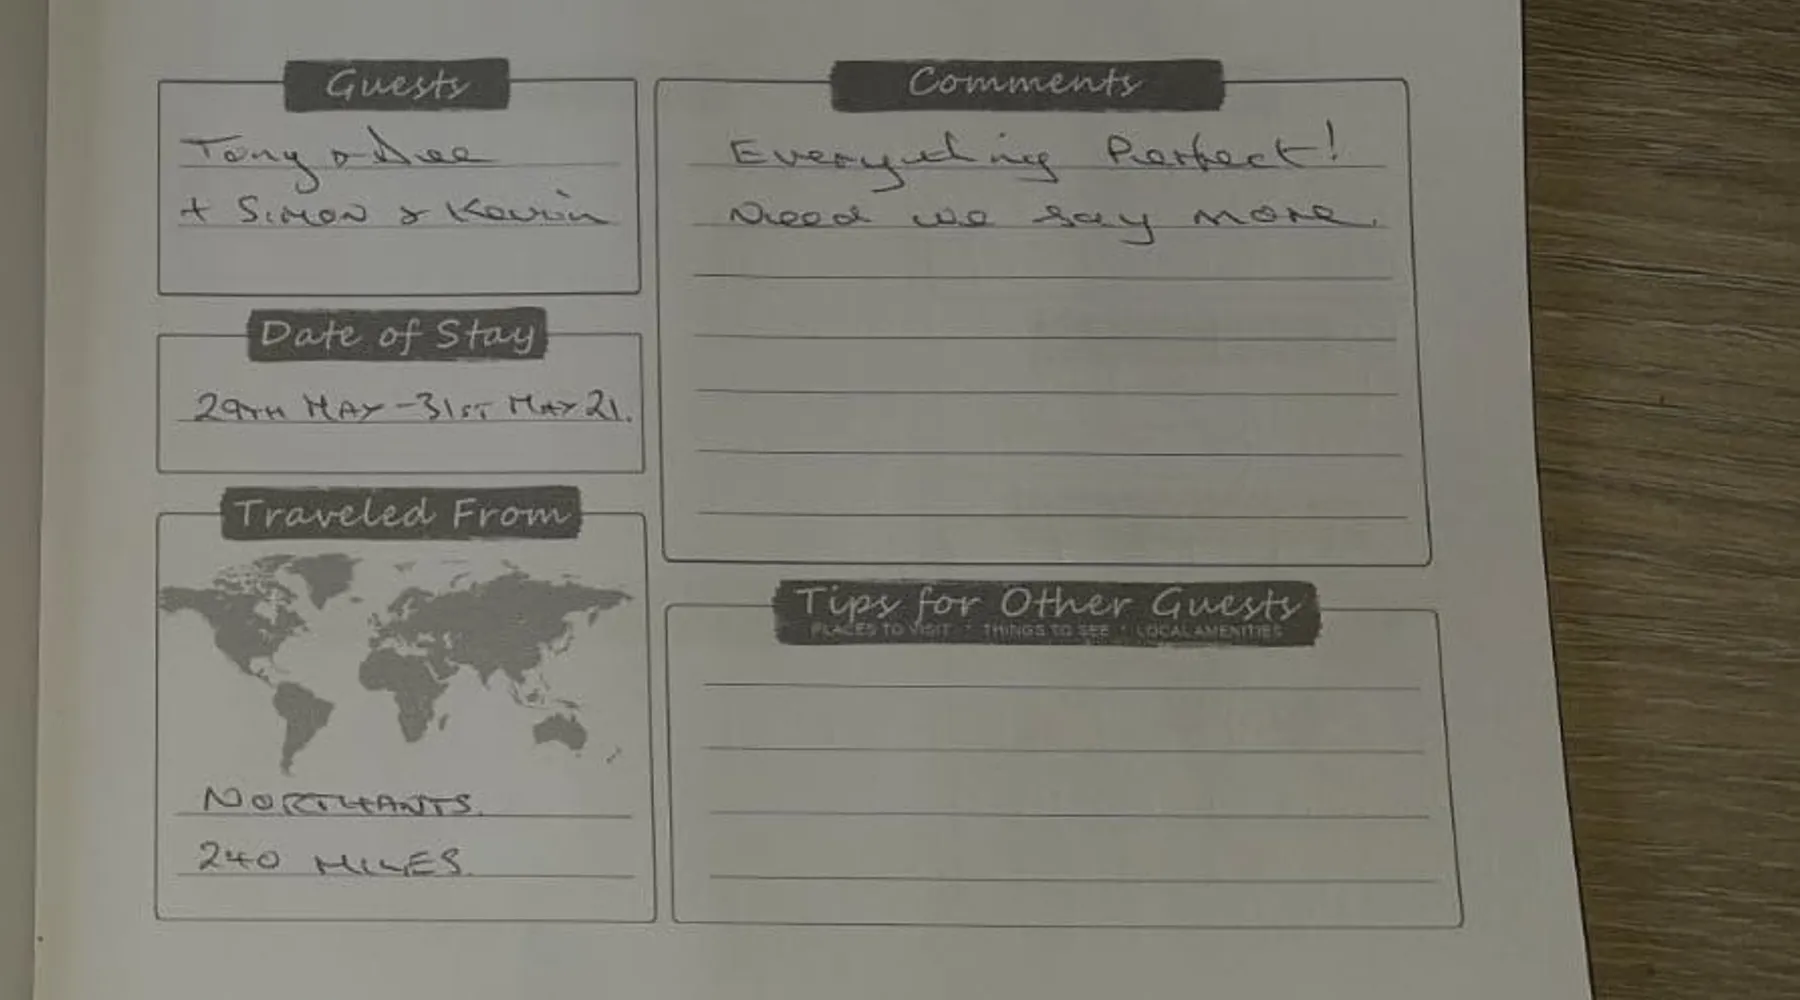 Guests
Tony & Dee
+ Simon & Kevin
Date of Stay
29TH MAY - 31ST MAY 21.
Traveled From
NORTHANTS.
240 MILES.
Comments
Everything Perfect!
Need we say more.
Tips for Other Guests
PLACES TO VISIT * THINGS TO SEE * LOCAL AMENITIES